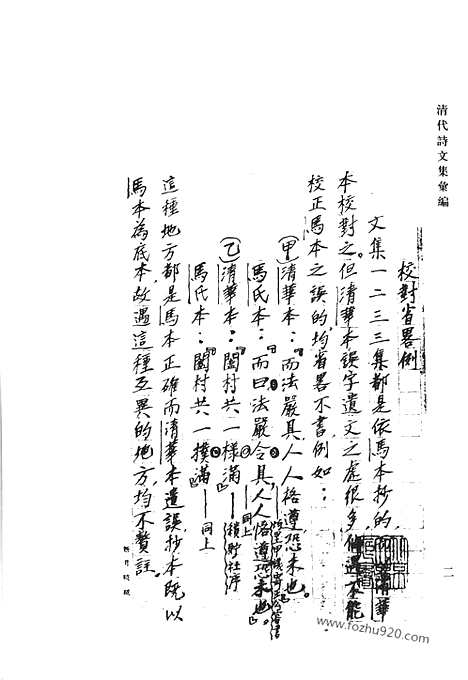 清代詩文集彙編
二
校對省畧例
文集一二三三集都是依馬本抄的，而以清華
本校對之。但清華本誤字遺文之處很多，倘遇不能
校正馬本之誤的，均省畧不書，例如：
（甲）清華本：『而法嚴具，人人格遵，恐未也。
馬氏本：『而曰法嚴令具，人人恪遵，恐未也。』
同上
（乙）清華本：『闔村共一樣滿』——積貯社序
馬氏本：『闔村共一撲滿』——同上
這種地方都是馬本正確而清華本遺誤，抄本既以
馬本為底本，故遇這種互異的地方，均不贅註。
www.fozhu920.com